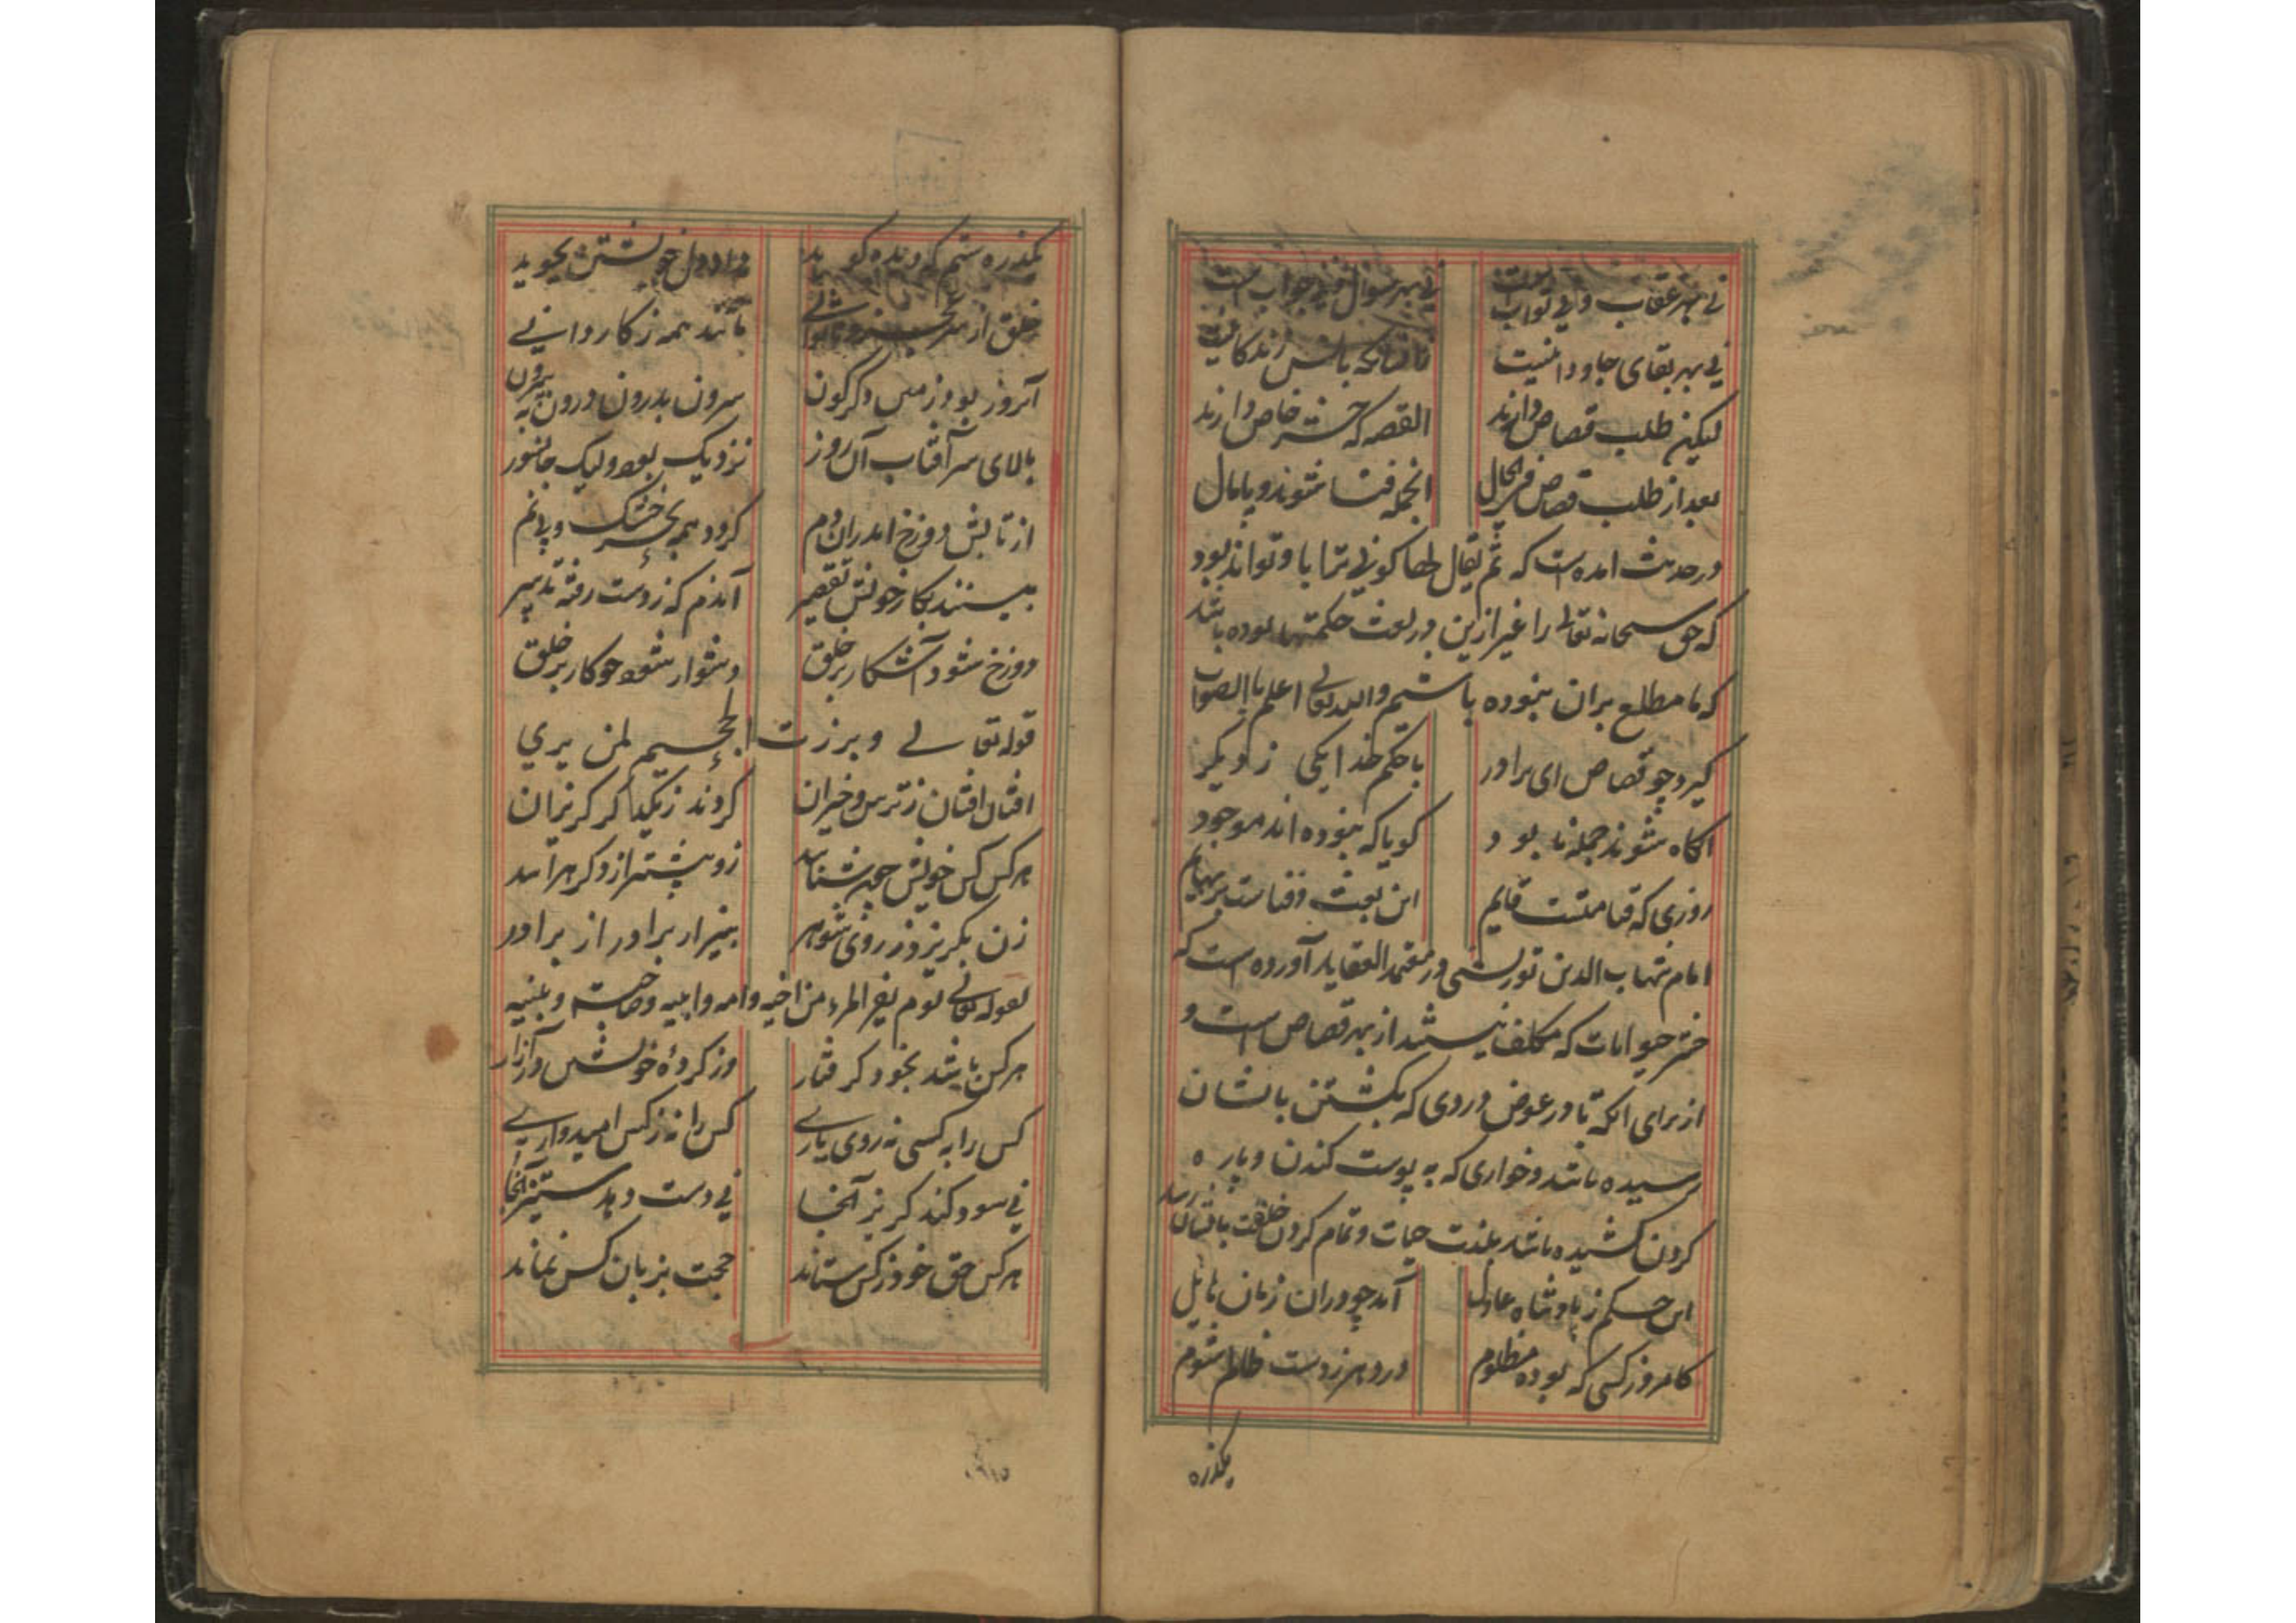 نی بهر عقاب و نی ثواب است نی بهر سوال و نی جواب است
نی بهر بقای جاودانیست
لیکن طلب قصاص دارند القصه که حشر خاص دارند
بعد از طلب قصاص فی الحال انجمله فنا شوند و پامال
در حدیث امده است که ثم یقال لها کونی ترابا و تواند بود
که حق سبحانه تعالی را غیر ازین در بعث حکمتها بوده باشد
که ما مطلع بران نبوده باشیم والله تعالی اعلم باالصواب
گیرد چو قصاص ای برادر با حکم خدا یکی ز دیگر
اگاه شوند جمله نابود گویا که نبوده اند موجود
روزی که قیامتست قایم این بعث و فناست بر بهایم
امام شهاب الدین تورپشتی در معتمد العقاید آورده است که
حشر حیوانات که مکلف نیستند از بهر قصاص است و
از برای انکه تا در عوض دردی که بکشتن بانشان
رسیده باشد و خواری که به پوست کندن و پاره
کردن کشیده باشد بلذت حیات و تمام کردن خلقت بانشان رسد
این حکم ز پادشاه عادل آمد چو دران زمان نازل
کامروز کسی که بوده مظلوم در دهر ز دست ظالم شوم
یکذره
یکذره ستم که دیده گوید داد دل خویشتن بجوید
خلق از سر مانند همه ز کاروانی
آنروز بود زمین دگرگون بیرون بدرون درون به بیرون
بالای سر آفتاب آن روز نزدیک بود ولیک جانسوز
از تابش دوزخ اندران دم گردد همه بحر خشک و بی نم
بینند بکار خویش تقصیر آندم که ز دست رفته تدبیر
دوزخ شود آشکار بر خلق دشوار شود چو کار بر خلق
قوله تعالی و برزت الجحیم لمن یری
افتان افتان ز ترس و خیزان گردند ز یکدگر گریزان
هر کس کس خویش چون شناسد زو بیشتر از دگر هراسد
زن بگریزد ز روی شوهر بیزار برادر از برادر
لقوله تعالی یوم یفر المرء من اخیه و امه و ابیه و صاحبته و بنیه
هر کس باشد بخود گرفتار وز کرده خویشتن در آزار
کس را به کسی نه روی یاری کس را نه ز کس امیدواری
نی سود کند گریز آنجا نی دست دهد ستیز آنجا
هر کس حق خود ز کس ستاند حجت بزبان کس نماند